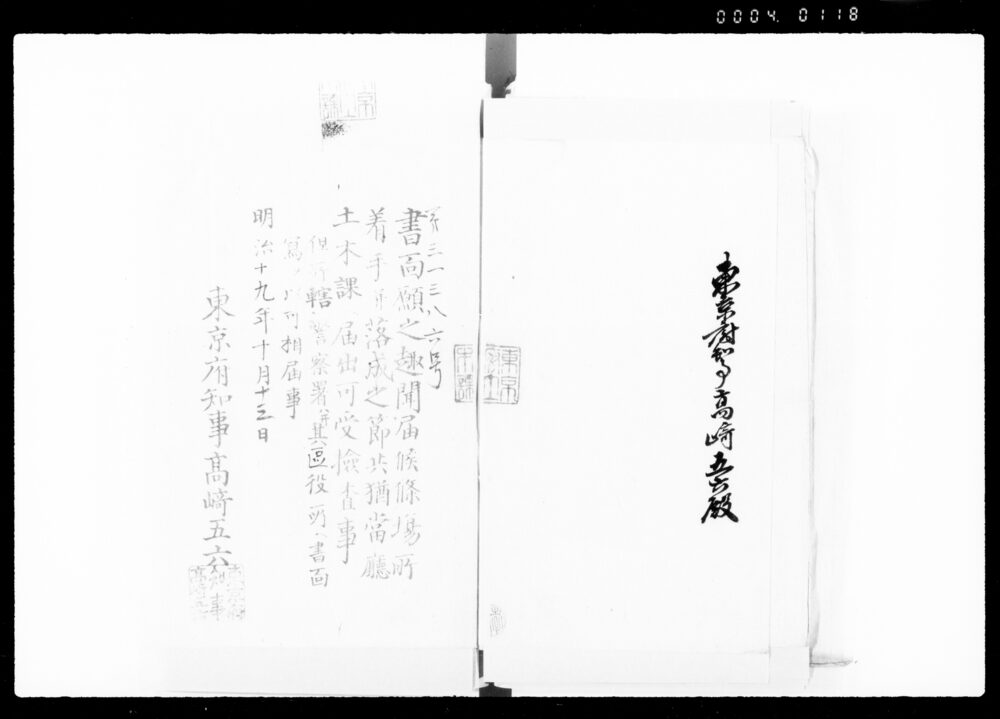 0004. 0118
東京府知事高崎五六殿
第三一三八六号
書面願之趣聞届候條場所
着手并落成之節共猶当廳
土木課ヘ届出可受撿査事
但所轄警察署并其区役所ヘ書面
寫ヲ以
相届事
明治十九年十月十三日
東京府知事高崎五六